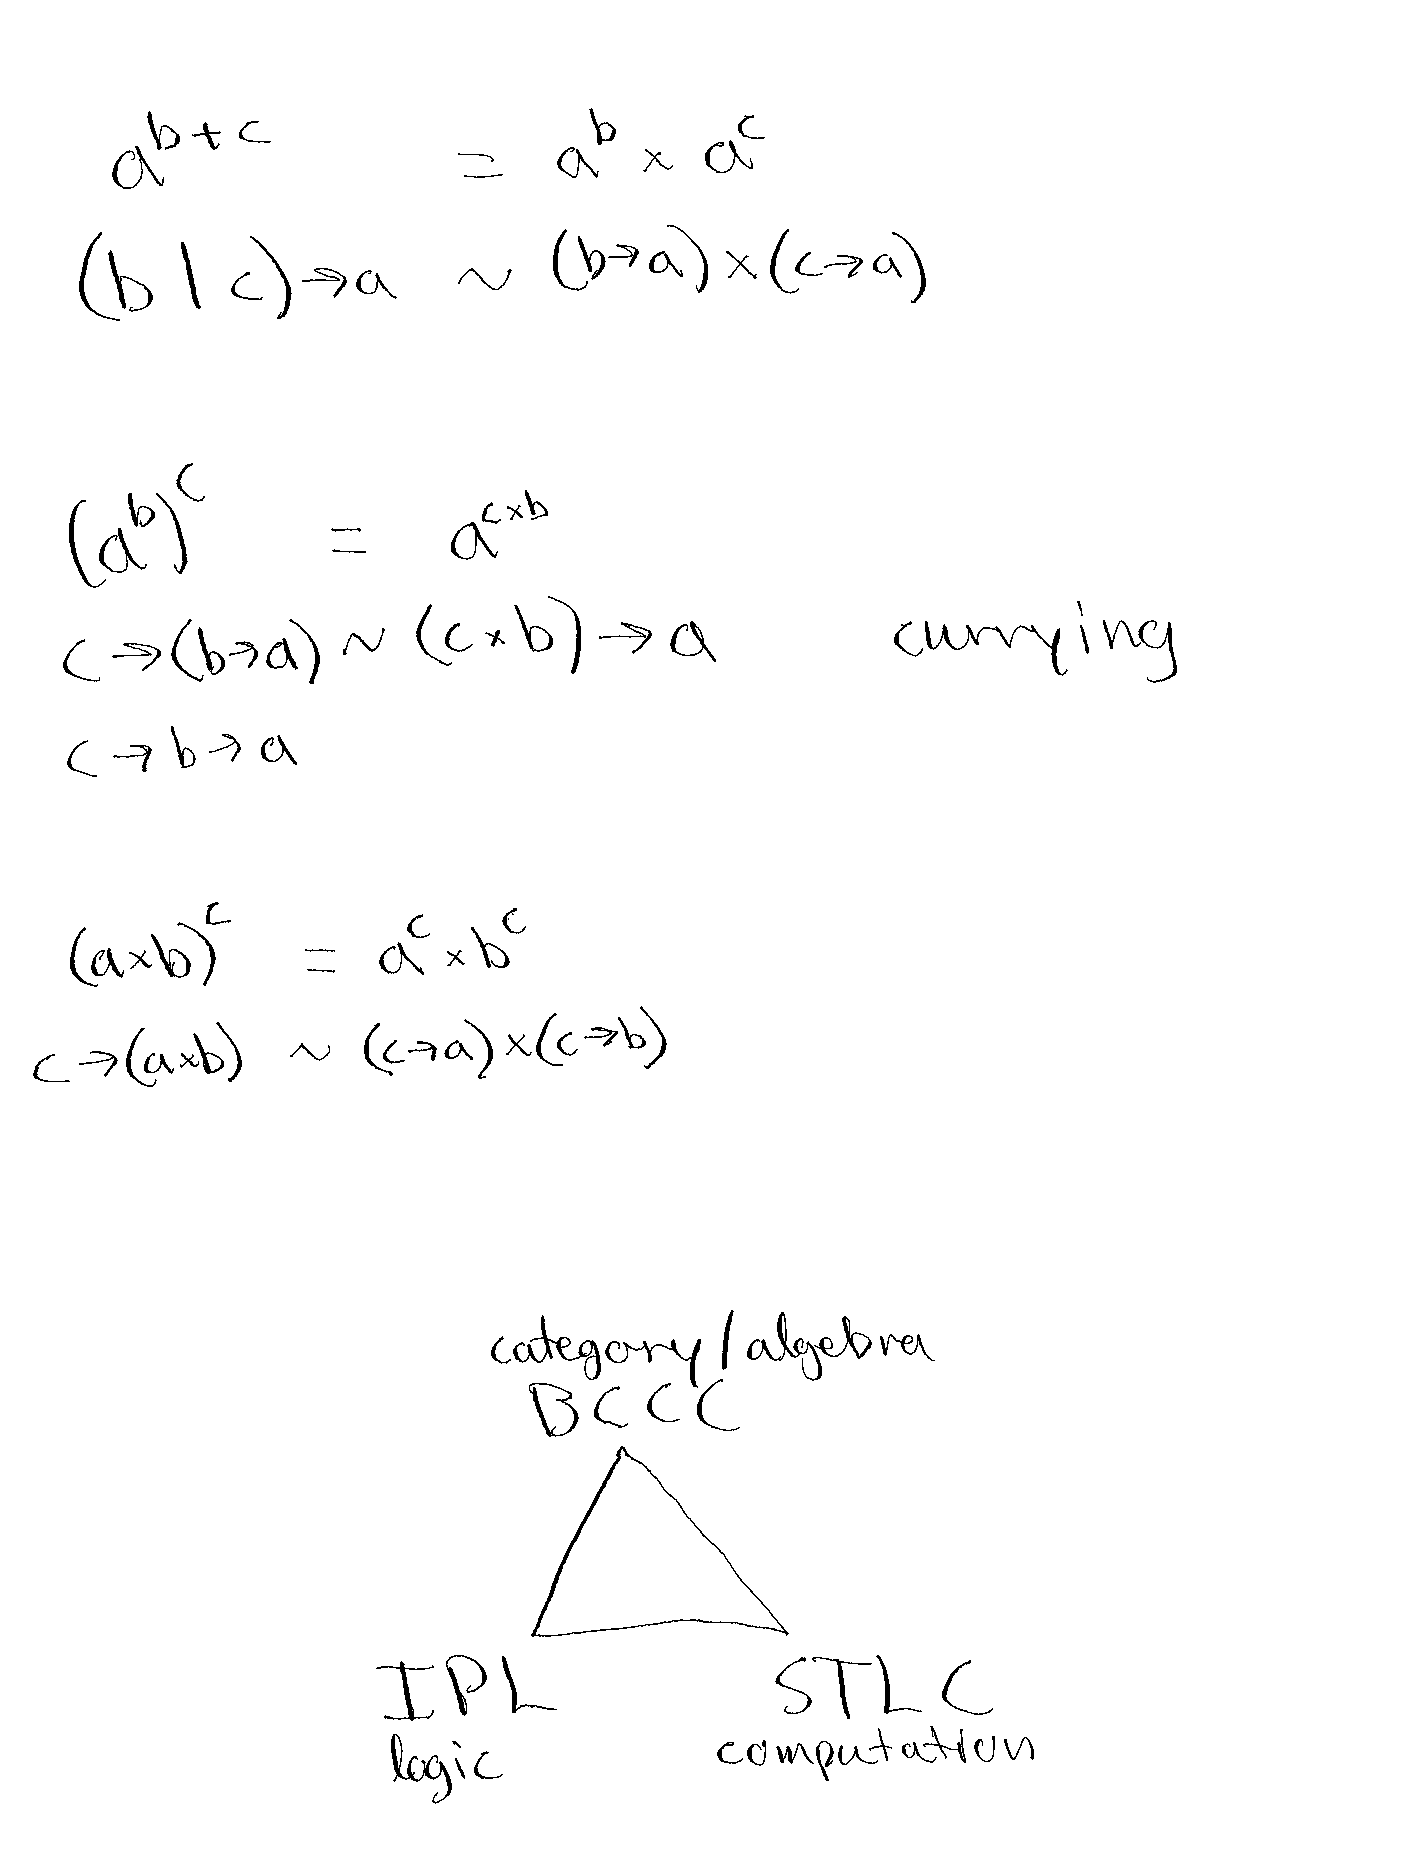 a^{b+c} = a^b × a^c
(b | c)→a ~ (b→a)×(c→a)
(a^b)^c = a^{c×b}
c→(b→a) ~ (c×b)→a currying
c→b→a
(a×b)^c = a^c × b^c
c→(a×b) ~ (c→a)×(c→b)
category/algebra
BCCC
IPL STLC
logic computation